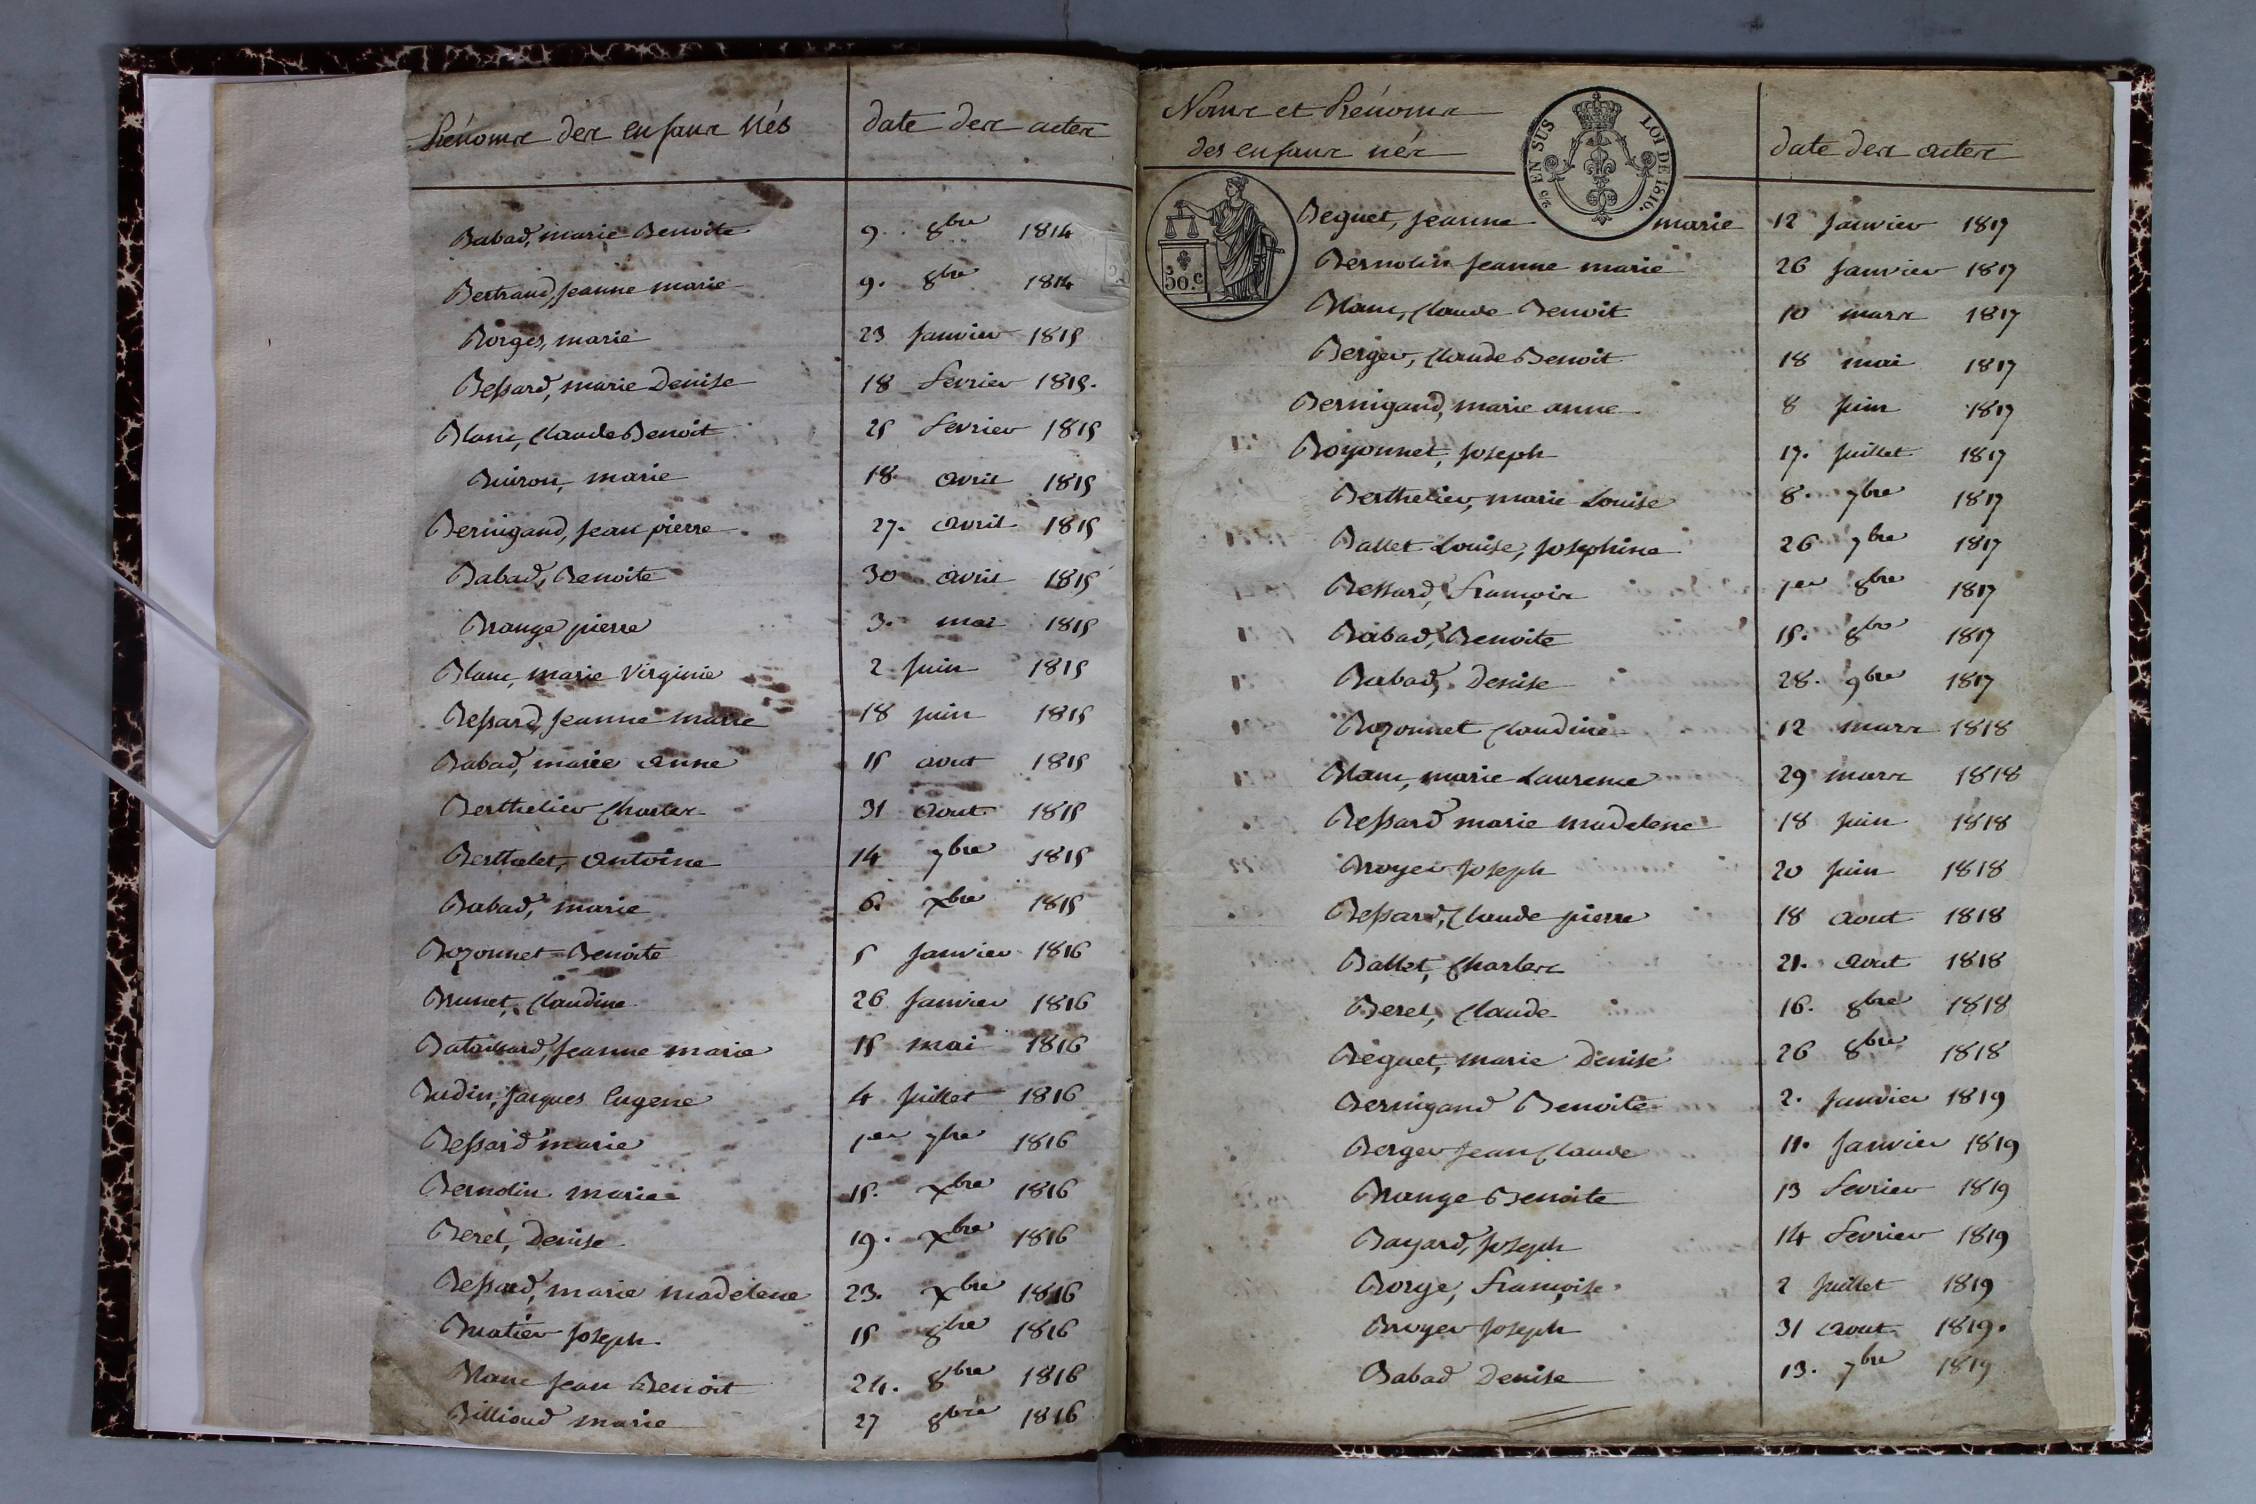 Prénoms des enfans nés
date des actes
Babad, marie Benoite 9. 8bre 1814
Bertrand, jeanne marie 9. 8bre 1814
Borges, marie 23 janvier 1815
Bessard, marie Denise 18 fevrier 1815.
Blanc, Claude Benoit 25 fevrier 1815
Buiron, marie 18 avril 1815
Bernigaud, jean pierre 27. avril 1815
Babad, Benoite 30 avril 1815
Brange pierre 3. mai 1815
Blanc, marie Virginie 2 juin 1815
Bessard, jeanne marie 18 juin 1815
Babad, marie anne 15 aout 1815
Berthelier Charles 31 aout 1815
Berthelet, antoine 14 7bre 1815
Babad, marie 6. Xbre 1815
Bozonnet Benoite 5 janvier 1816
Brunet, Claudine 26 janvier 1816
Bataillard, jeanne marie 15 mai 1816
Budin, jacques Eugene 4 juillet 1816
Bessard marie 1er 7bre 1816
Bernolin marie 15. Xbre 1816
Beret, Denise 19. Xbre 1816
Bessard, marie madelene 23. Xbre 1816
joseph 15 8bre 1816
Blanc jean Benoit 24. 8bre 1816
Billioud marie 27 8bre 1816
Noms et Prénoms
des enfans nés
date des actes
2/5 EN SUS LOI DE 1816.
50.c
Beguet, jeanne marie 12 janvier 1817
Bernolin jeanne marie 26 janvier 1817
Blanc, Claude Benoit 10 mars 1817
Berger, Claude Benoit 18 mai 1817
Bernigaud, marie anne 8 juin 1817
Boyonnet, joseph 17. juillet 1817
Berthelier, marie Louise 8. 7bre 1817
Ballet Louise, josephine 26 7bre 1817
Bessard, François 1er 8bre 1817
Babad, Benoite 15. 8bre 1817
Babad, Denise 28. 9bre 1817
Bozonnet Claudine 12 mars 1818
Blanc, marie Laurence 29 mars 1818
Bessard marie madelene 18 juin 1818
Broyer joseph 20 juin 1818
Bessard, Claude pierre 18 aout 1818
Ballet, Charles 21. aout 1818
Beret, Claude 16. 8bre 1818
Béguet, marie Denise 26 8bre 1818
Bernigaud Benoite 2. janvier 1819
Berger jean Claude 11. janvier 1819
Brange Benoite 13 fevrier 1819
Bayard, joseph 14 fevrier 1819
Borge, Françoise 2 juillet 1819
Broyer joseph 31 aout 1819.
Babad Denise 13. 7bre 1819